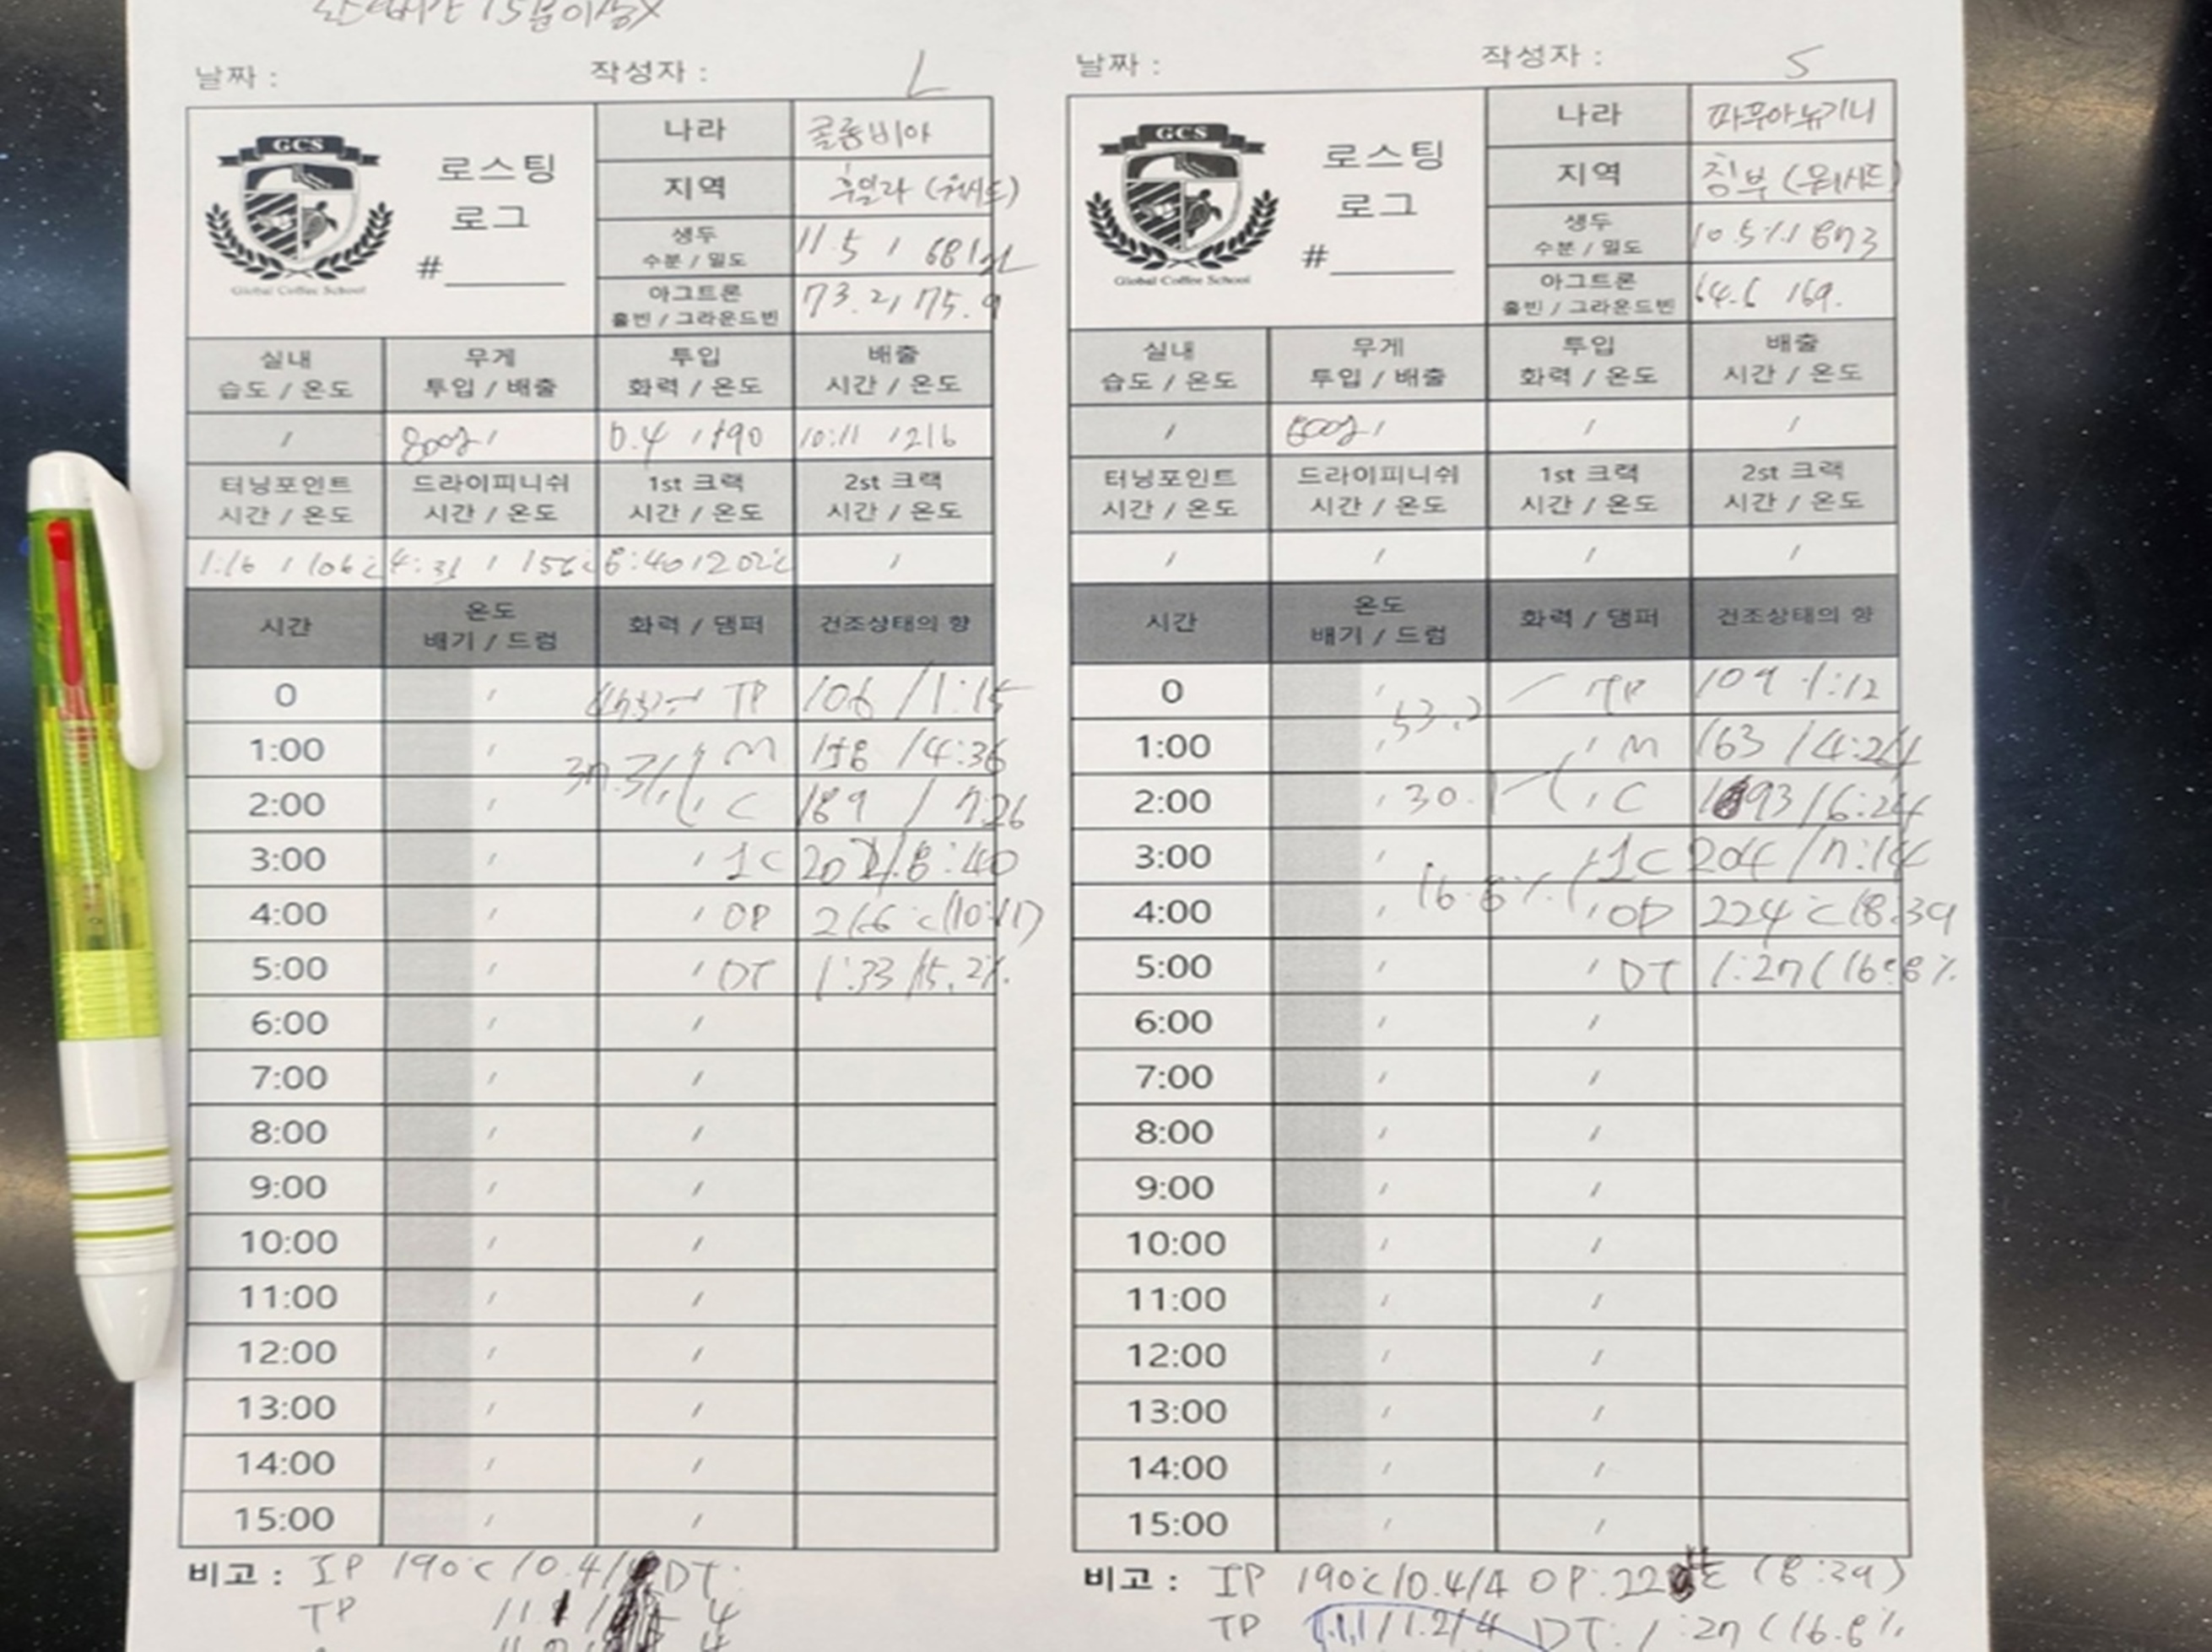 날짜 : 작성자 : L
GCS
Global Coffee School
로스팅
로그
#
나라 콜롬비아
지역 후일라 (워시드)
생두
수분 / 밀도
11.5 / 681
아그트론
홀빈 / 그라운드빈
73.2 / 75.9
실내
습도 / 온도
무게
투입 / 배출
투입
화력 / 온도
배출
시간 / 온도
/ 800g / 0.4 / 190 10:11 / 216
터닝포인트
시간 / 온도
드라이피니쉬
시간 / 온도
1st 크랙
시간 / 온도
2st 크랙
시간 / 온도
1:16 / 106℃ 4:31 / 156℃ 8:40 / 202℃ /
시간
온도
배기 / 드럼
화력 / 댐퍼
건조상태의 향
0 / TP 106 / 1:15
1:00 / / M 158 / 4:36
2:00 / / C 189 / 7:26
3:00 / / 1C 202 / 8:40
4:00 / / OP 216℃
5:00 / / DT 1:33 / 15.2%
6:00 / /
7:00 / /
8:00 / /
9:00 / /
10:00 / /
11:00 / /
12:00 / /
13:00 / /
14:00 / /
15:00 / /
비고 : IP 190℃ / 0.4 / DT:
TP
날짜 : 작성자 : S
GCS
Global Coffee School
로스팅
로그
#
나라 파푸아뉴기니
지역 침부 (워시드)
생두
수분 / 밀도
10.5% / 873
아그트론
홀빈 / 그라운드빈
64.6 / 69.
실내
습도 / 온도
무게
투입 / 배출
투입
화력 / 온도
배출
시간 / 온도
/ / / /
터닝포인트
시간 / 온도
드라이피니쉬
시간 / 온도
1st 크랙
시간 / 온도
2st 크랙
시간 / 온도
/ / / /
시간
온도
배기 / 드럼
화력 / 댐퍼
건조상태의 향
0 / 53.2 / TP 109 / 1:12
1:00 / / M 163 / 4:24
2:00 / 30.1 / C 193 / 6:24
3:00 / / 1C 204 / 7:14
4:00 / 16.8% / OP 224℃ (8:39
5:00 / / DT 1:27 (16.8%
6:00 / /
7:00 / /
8:00 / /
9:00 / /
10:00 / /
11:00 / /
12:00 / /
13:00 / /
14:00 / /
15:00 / /
비고 : IP 190℃ / 0.4 / 4 OP: (8:39)
TP 1.2 / 4 DT: 1:27 (16.8%